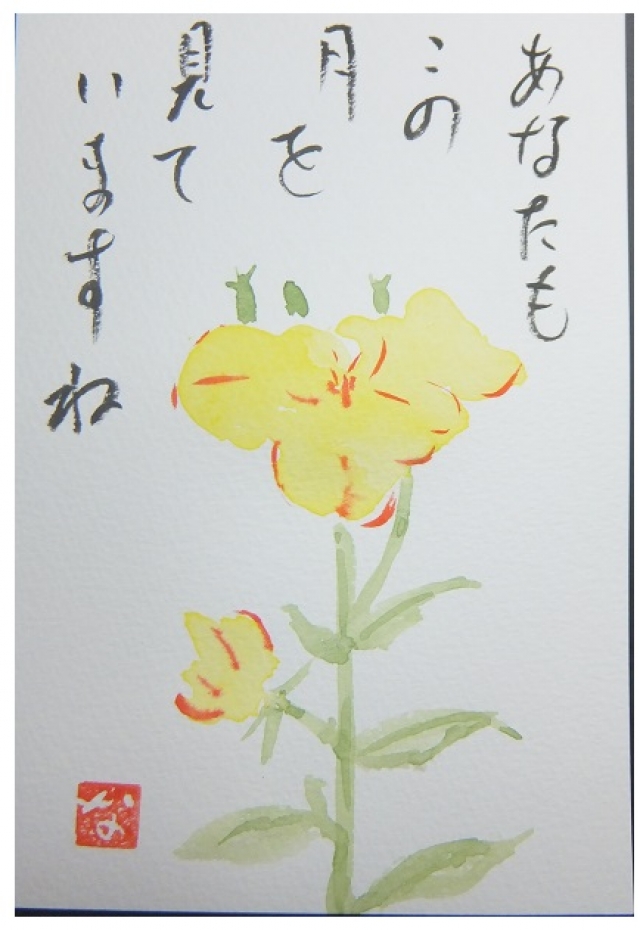 あなたも
この
月を
見て
いますね
な